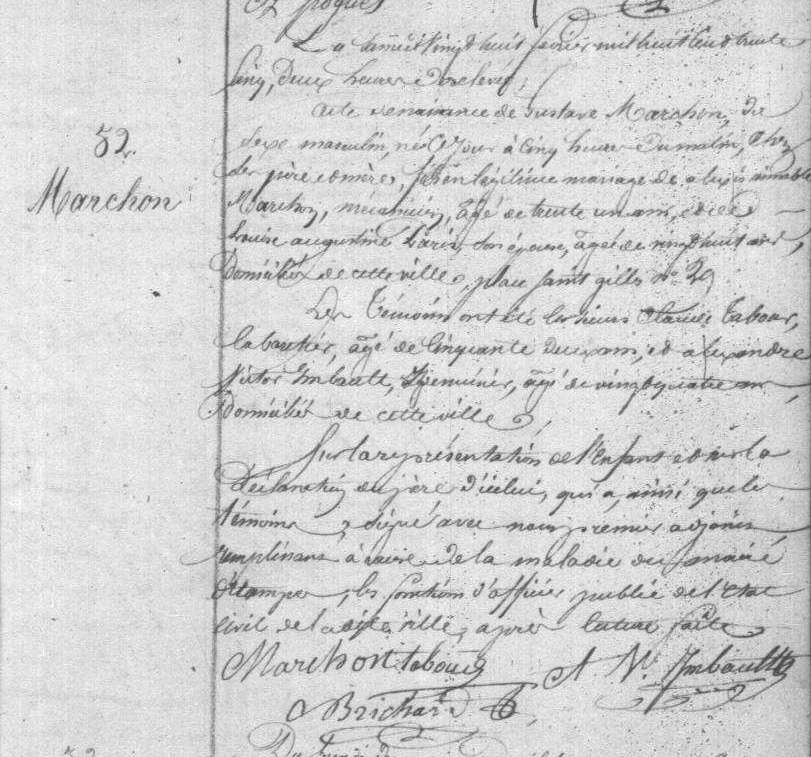 Le samedi vingt huit février mil huit cent trente
cinq, deux heures de relevée,
acte de naissance de Gustave Marchon, du
52.
sexe masculin, né ce jour à cinq heures du matin, chez
Marchon
ses père et mère, fils en légitime mariage de alexis aimable
Marchon, mecanicien, âgé de trente un ans, et de
Louise augustine, son épouse, âgée de vingt huit ans,
Domiciliés de cette ville, place saint gilles n° 29
Les Témoins ont été les sieurs Claude Tabour,
âgé de Cinquante deux ans, et alexandre
Victor Imbault, âgé de vingt quatre ans
Domiciliés de cette ville,
Sur la représentation de l'Enfant et sur la
Déclaration du père d'icelui, qui a, ainsi que les
témoins, signé avec nous premier adjoint
remplissant à cause de la maladie du maire
d'étampes, les fonctions d'officier public de l'Etat
civil de la dite ville, après lecture faite
Marchon Tabour A V. Imbault
Brichard